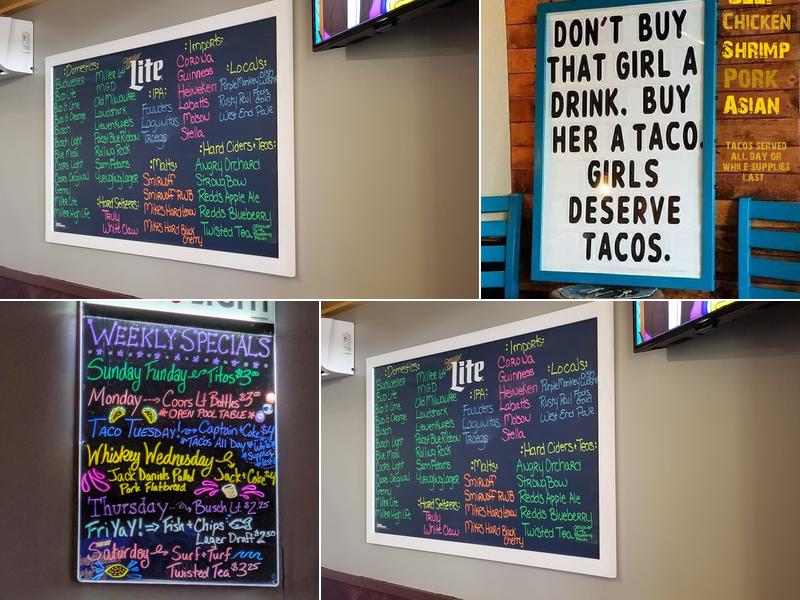 :Domestics:
Budweiser
Bud Lite
Bud lt Lime
Bud lt Orange
Busch
Busch Light
Blue Moon
Coors Light
Coors Original
Genny
Miller Lite
Miller High Life
Miller 64
MGD
Old Milwaukee
Landshark
Leinenkugels
Pabst Blue Ribbon
Rolling Rock
Sam Adams
Yuengling Lager
:Hard Seltzers:
Truly
White Claw
Lite
:IPA:
Founders
Lagunitas
Troegs
:Malts:
Smirnoff
Smirnoff RWB
Mikes Hard Lemon
Mikes Hard Black
Cherry
:Imports:
Corona
Guinness
Heineken
Labatts
Molson
Stella
:Locals:
West End Pale
:Hard Ciders+Teas:
Angry Orchard
Strong Bow
Redds Apple Ale
Redds Blueberry
Twisted Tea
DON'T BUY
THAT GIRL A
DRINK. BUY
HER A TACO.
GIRLS
DESERVE
TACOS.
CHICKEN
SHRIMP
PORK
ASIAN
TACOS SERVED
ALL DAY OR
WHILE SUPPLIES
LAST
WEEKLY SPECIALS
Sunday Funday Titos $3.00
Monday Coors Lt Bottles $3.00
*OPEN POOL TABLE*
TACO TUESDAY! Captain + Coke $4
*TACOS All Day*
Whiskey Wednesday
Jack Daniels Pulled Jack+Coke $4
Pork Flatbread
Thursday Busch Lt $2.25
FriYAY! Fish + Chips
Lager Draft $2.50
Saturday Surf + Turf
Twisted Tea $3.25
:Domestics:
Budweiser
Bud Lite
Bud lt Lime
Bud lt Orange
Busch
Busch Light
Blue Moon
Coors Light
Coors Original
Genny
Miller Lite
Miller High Life
Miller 64
MGD
Old Milwaukee
Landshark
Leinenkugels
Pabst Blue Ribbon
Rolling Rock
Sam Adams
Yuengling Lager
:Hard Seltzers:
Truly
White Claw
Lite
:IPA:
Founders
Lagunitas
Troegs
:Malts:
Smirnoff
Smirnoff RWB
Mikes Hard Lemon
Mikes Hard Black
Cherry
:Imports:
Corona
Guinness
Heineken
Labatts
Molson
Stella
:Locals:
West End Pale
:Hard Ciders+Teas:
Angry Orchard
Strong Bow
Redds Apple Ale
Redds Blueberry
Twisted Tea